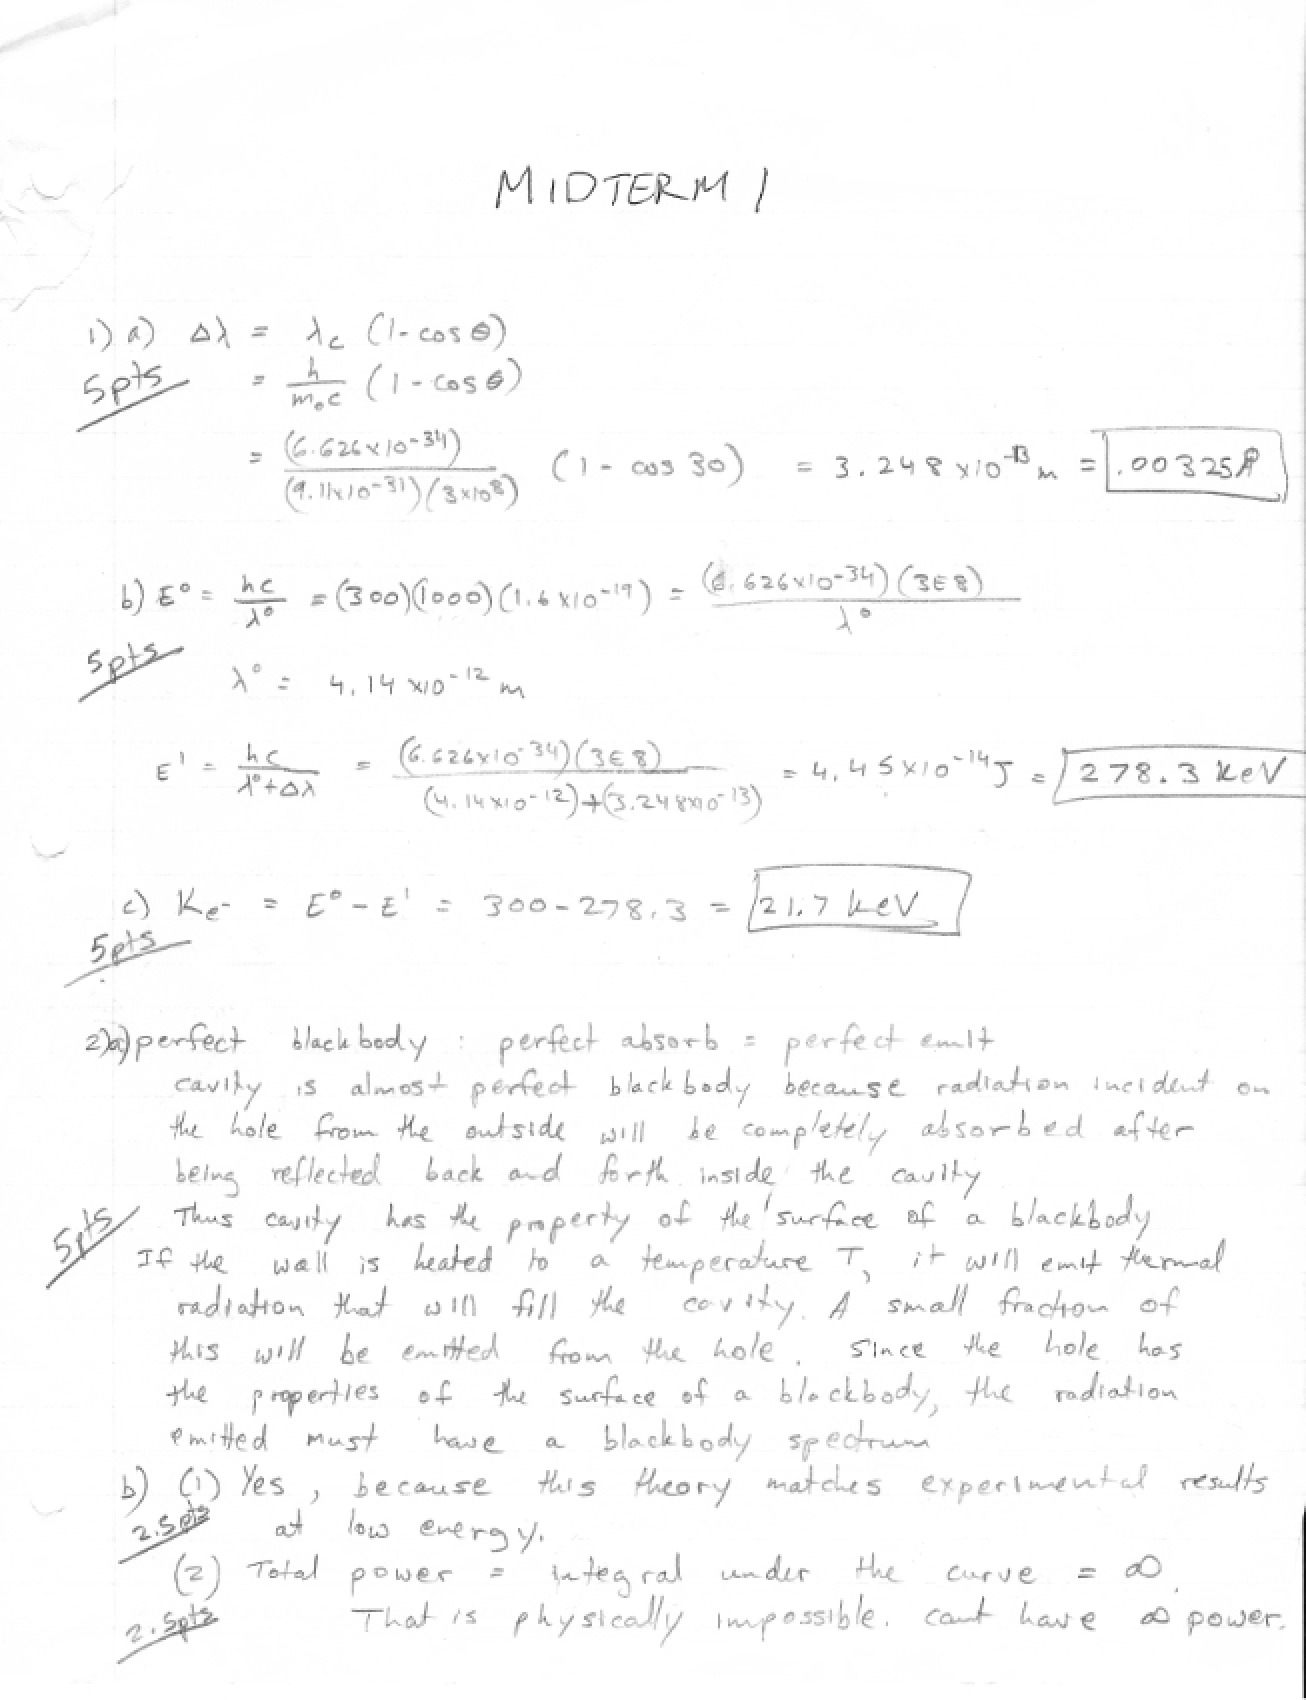 MIDTERM 1
1) a) Δλ = λc (1-cos θ)
5pts
= h/m₀c (1-cos θ)
= (6.626x10^-34)/(9.11x10^-31)(3x10^8) (1 - cos 30) = 3.248x10^-13 m = .00325Å
b) E° = hc/λ° = (300)(1000)(1.6x10^-19) = (6.626x10^-34)(3E8)/λ°
5pts
λ° = 4.14x10^-12 m
E' = hc/λ°+Δλ = (6.626x10^-34)(3E8)/(4.14x10^-12)+(3.248x10^-13) = 4.45x10^-14 J = 278.3 keV
c) Ke- = E° - E' = 300-278.3 = 21.7 keV
5pts
2)a) perfect blackbody : perfect absorb = perfect emit
cavity is almost perfect blackbody because radiation incident on
the hole from the outside will be completely absorbed after
being reflected back and forth inside the cavity
5pts
Thus cavity has the property of the surface of a blackbody
If the wall is heated to a temperature T, it will emit thermal
radiation that will fill the cavity. A small fraction of
this will be emitted from the hole. Since the hole has
the properties of the surface of a blackbody, the radiation
emitted must have a blackbody spectrum
b) (1) Yes, because this theory matches experimental results
2.5pts
at low energy.
(2) Total power = integral under the curve = ∞.
2.5pts
That is physically impossible. cant have ∞ power.